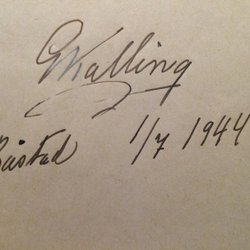 G Kalling
Båstad 1/7 1944